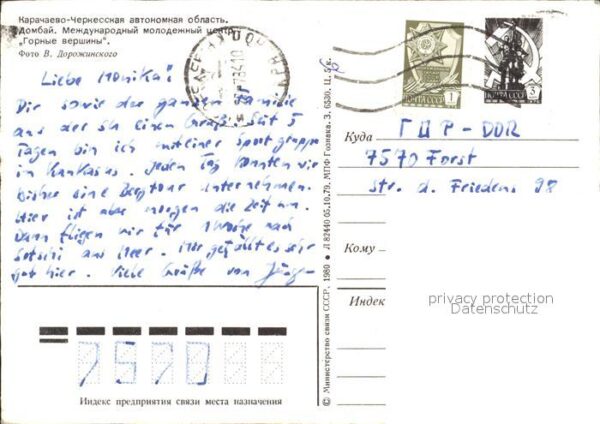 Карачаево-Черкесская автономная область.
Домбай. Международный молодежный центр
„Горные вершины“.
Фото В. Дорожинского
Liebe Monika!
Dir sowie der ganzen Familie
aus der SU einen Gruß. Seit 5
Tagen bin ich mit einer Sportgruppe
im Kaukasus. Jeden Tag konnten wir
bisher eine Bergtour unternehmen.
Hier ist aber morgen die Zeit um.
Dann fliegen wir für 1 Woche nach
Sotschi ans Meer. Mir gefällt es sehr
gut hier. Viele Grüße von Jürg-
ПОЧТА СССР 1
ПОЧТА СССР 3
Куда ГДР-DDR
7570 Forst
Str. d. Friedens 92
Кому
Индекс
privacy protection
Oldthing
7570
Индекс предприятия связи места назначения
© Министерство связи СССР, 1980 Л 82440 05.10.79. МПФ Гознака. З. 6530. Ц. 5 к.